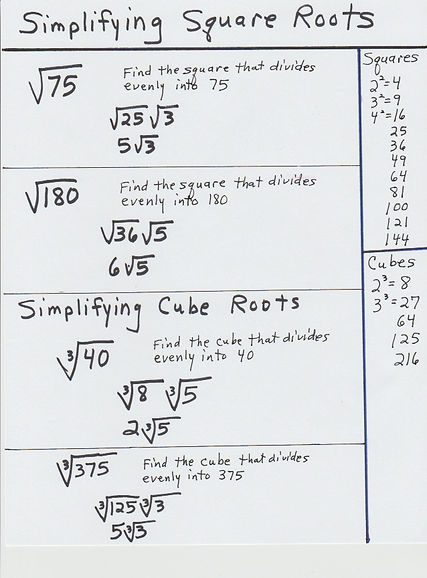 Simplifying Square Roots
√75
Find the square that divides
evenly into 75
√25 √3
5√3
√180
Find the square that divides
evenly into 180
√36 √5
6√5
Simplifying Cube Roots
∛40
Find the cube that divides
evenly into 40
∛8 ∛5
2∛5
∛375
Find the cube that divides
evenly into 375
∛125 ∛3
5∛3
Squares
2²=4
3²=9
4²=16
25
36
49
64
81
100
121
144
Cubes
2³=8
3³=27
64
125
216